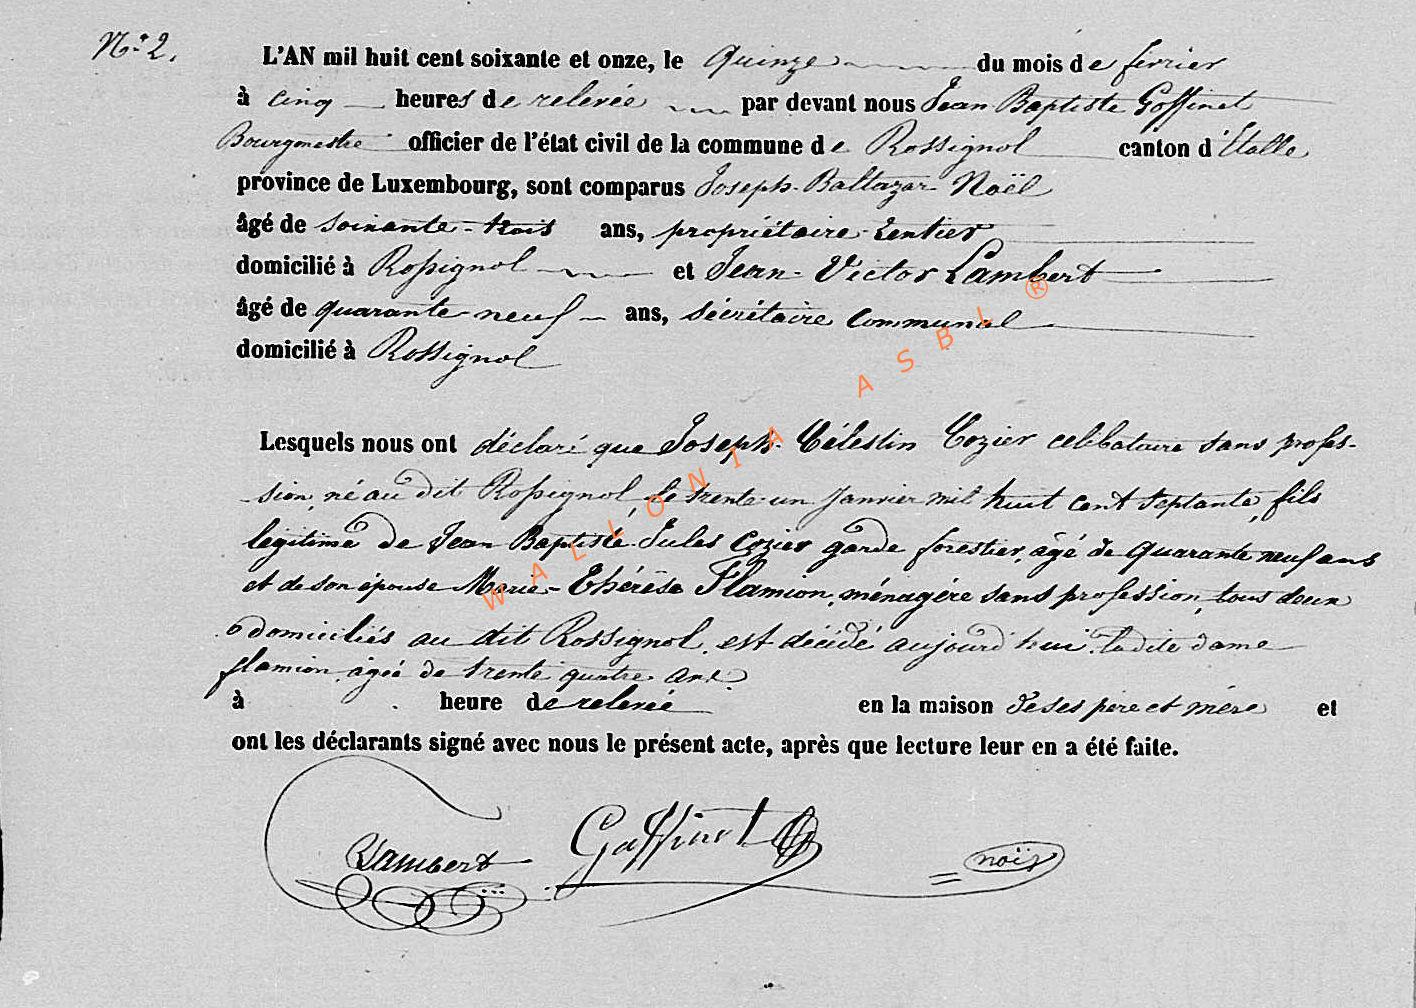 N° 2.
L'AN mil huit cent soixante et onze, le Quinze du mois de février
à cinq heures de relevée par devant nous Jean Baptiste Goffinet
Bourgmestre officier de l'état civil de la commune de Rossignol canton d'Etalle
province de Luxembourg, sont comparus Joseph-Baltazar Noël
âgé de soixante-trois ans, propriétaire-rentier
domicilié à Rossignol et Jean-Victor Lambert
âgé de quarante-neuf ans, sécrétaire communal
domicilié à Rossignol
Lesquels nous ont déclaré que Joseph-Célestin Cozier celibataire sans profes-
sion, né au dit Rossignol, le trente-un Janvier mil huit cent septante, fils
légitime de Jean Baptiste Jules Cozier garde forestier, âgé de quarante neuf ans
et de son épouse Marie-Thérèse Flamion, ménagére sans profession, tous deux
domiciliés au dit Rossignol, est décédé aujourd'hui. Ladite dame
flamion, âgée de trente quatre ans.
à heure de relevée en la maison de ses père et mère et
ont les déclarants signé avec nous le présent acte, après que lecture leur en a été faite.
Lambert Goffinet noël
WALLONIA ASBL ®